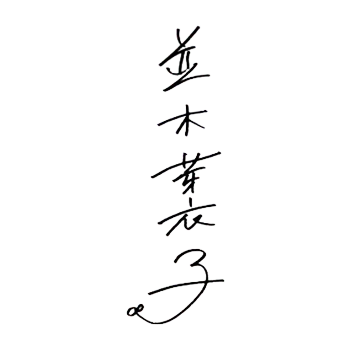 並木芽衣子